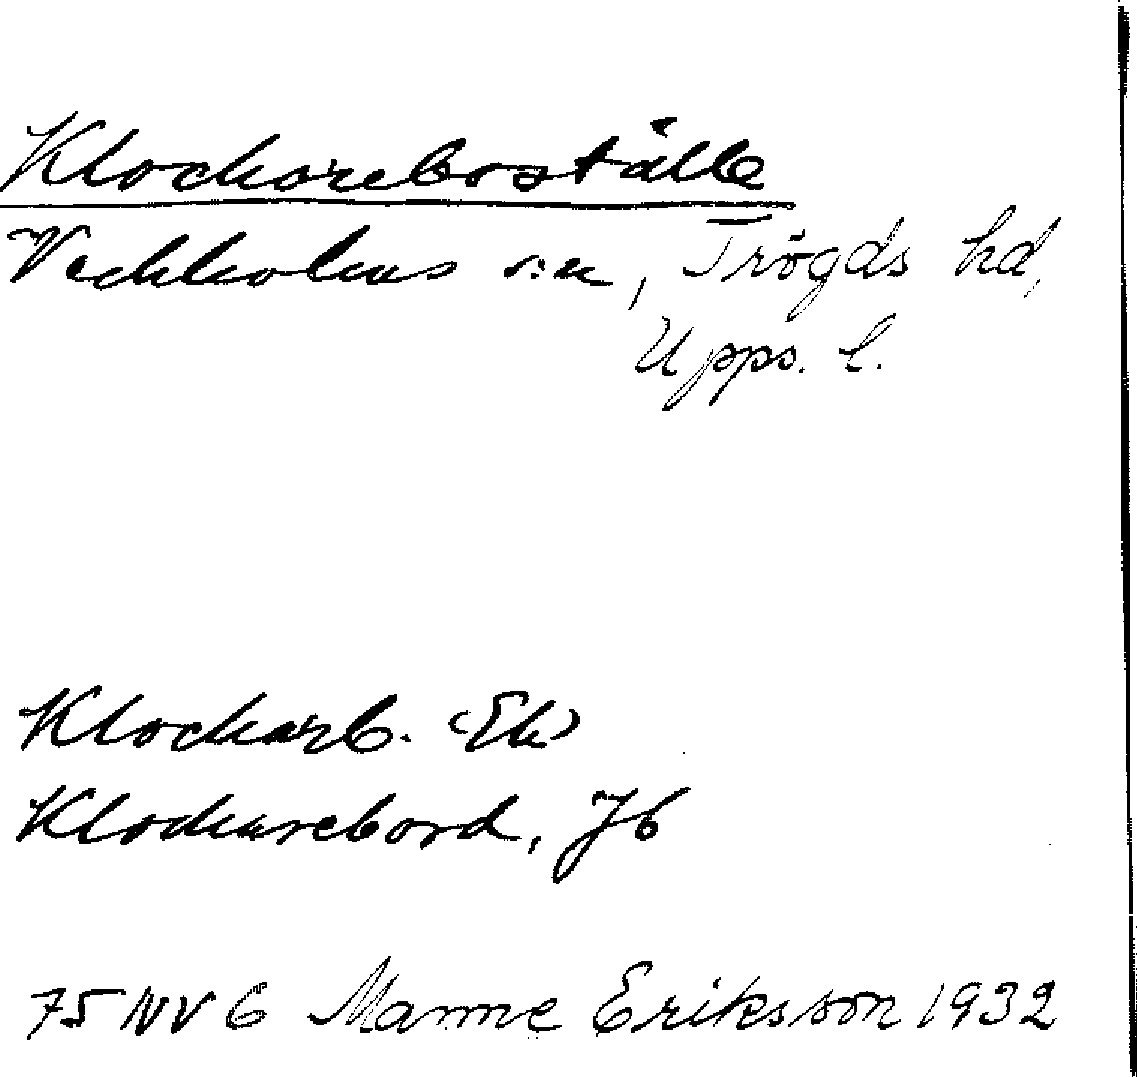 Klockareboställe
Veckholms s:n, Trögds hd,
Upps. l.
Klockarb. (Ek)
Klockarebord, Jb
75 NV 6 Manne Eriksson 1932